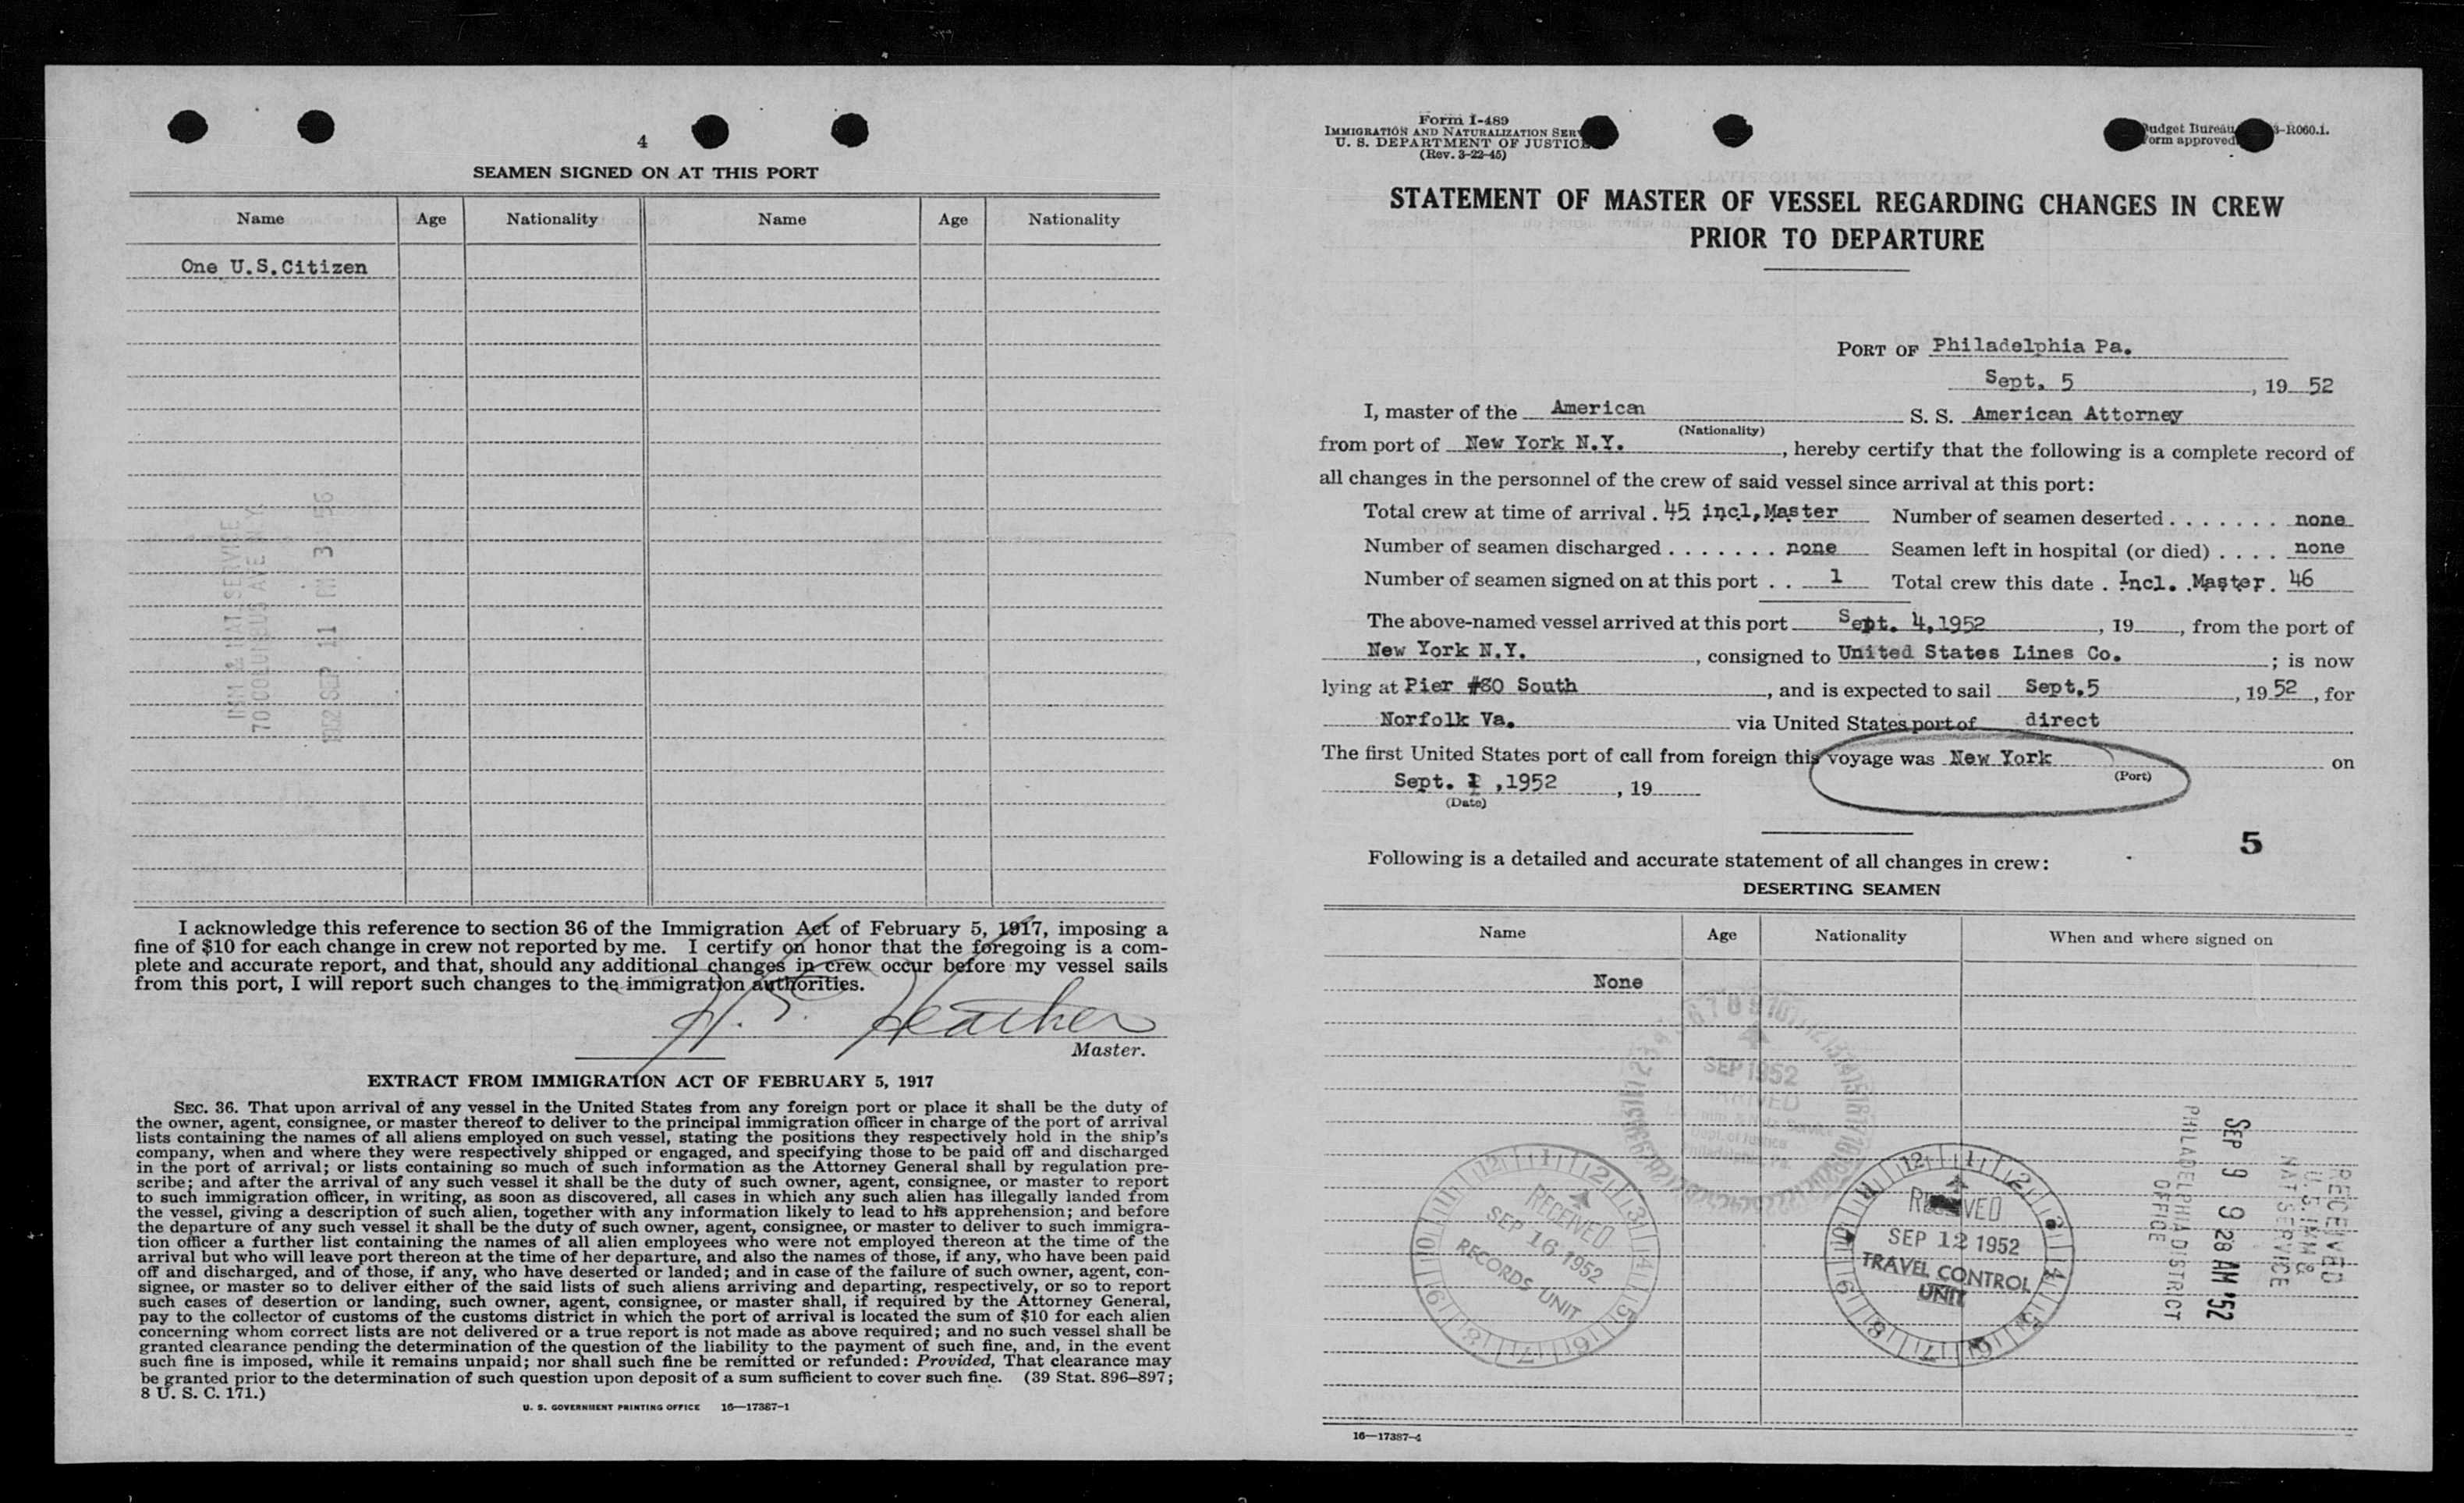 4
SEAMEN SIGNED ON AT THIS PORT
Name Age Nationality Name Age Nationality
One U.S.Citizen
IMM & NAT SERVICE
70 COLUMBUS AVE N.Y.
1952 SEP 11 PM 3 56
I acknowledge this reference to section 36 of the Immigration Act of February 5, 1917, imposing a
fine of $10 for each change in crew not reported by me. I certify on honor that the foregoing is a com-
plete and accurate report, and that, should any additional changes in crew occur before my vessel sails
from this port, I will report such changes to the immigration authorities.
Heather
Master.
EXTRACT FROM IMMIGRATION ACT OF FEBRUARY 5, 1917
SEC. 36. That upon arrival of any vessel in the United States from any foreign port or place it shall be the duty of
the owner, agent, consignee, or master thereof to deliver to the principal immigration officer in charge of the port of arrival
lists containing the names of all aliens employed on such vessel, stating the positions they respectively hold in the ship's
company, when and where they were respectively shipped or engaged, and specifying those to be paid off and discharged
in the port of arrival; or lists containing so much of such information as the Attorney General shall by regulation pre-
scribe; and after the arrival of any such vessel it shall be the duty of such owner, agent, consignee, or master to report
to such immigration officer, in writing, as soon as discovered, all cases in which any such alien has illegally landed from
the vessel, giving a description of such alien, together with any information likely to lead to his apprehension; and before
the departure of any such vessel it shall be the duty of such owner, agent, consignee, or master to deliver to such immigra-
tion officer a further list containing the names of all alien employees who were not employed thereon at the time of the
arrival but who will leave port thereon at the time of her departure, and also the names of those, if any, who have been paid
off and discharged, and of those, if any, who have deserted or landed; and in case of the failure of such owner, agent, con-
signee, or master so to deliver either of the said lists of such aliens arriving and departing, respectively, or so to report
such cases of desertion or landing, such owner, agent, consignee, or master shall, if required by the Attorney General,
pay to the collector of customs of the customs district in which the port of arrival is located the sum of $10 for each alien
concerning whom correct lists are not delivered or a true report is not made as above required; and no such vessel shall be
granted clearance pending the determination of the question of the liability to the payment of such fine, and, in the event
such fine is imposed, while it remains unpaid; nor shall such fine be remitted or refunded: Provided, That clearance may
be granted prior to the determination of such question upon deposit of a sum sufficient to cover such fine. (39 Stat. 896–897;
8 U. S. C. 171.)
U. S. GOVERNMENT PRINTING OFFICE 16—17387-1
Form I-489
IMMIGRATION AND NATURALIZATION SER
U. S. DEPARTMENT OF JUSTICE
(Rev. 3-22-45)
Budget Bureau 3-R060.1.
Form approved
STATEMENT OF MASTER OF VESSEL REGARDING CHANGES IN CREW
PRIOR TO DEPARTURE
PORT OF Philadelphia Pa.
Sept. 5, 19 52
I, master of the American S. S. American Attorney
(Nationality)
from port of New York N.Y., hereby certify that the following is a complete record of
all changes in the personnel of the crew of said vessel since arrival at this port:
Total crew at time of arrival . 45 incl, Master Number of seamen deserted . . . . . . . none
Number of seamen discharged . . . . . . . none Seamen left in hospital (or died) . . . . none
Number of seamen signed on at this port . . 1 Total crew this date . Incl. Master. 46
The above-named vessel arrived at this port Sept. 4, 1952, 19, from the port of
New York N.Y., consigned to United States Lines Co. ; is now
lying at Pier #80 South, and is expected to sail Sept.5, 19 52, for
Norfolk Va. via United States port of direct
The first United States port of call from foreign this voyage was New York on
(Port)
Sept. 1 ,1952, 19
(Date)
5
Following is a detailed and accurate statement of all changes in crew:
DESERTING SEAMEN
Name Age Nationality When and where signed on
None
SEP 1952
RECEIVED
SEP 16 1952
RECORDS UNIT
RECEIVED
SEP 12 1952
TRAVEL CONTROL
UNIT
RECEIVED
U.S. IMM. &
NAT SERVICE
SEP 9 9 28 AM '52
PHILADELPHIA DISTRICT
OFFICE
16—17387-4